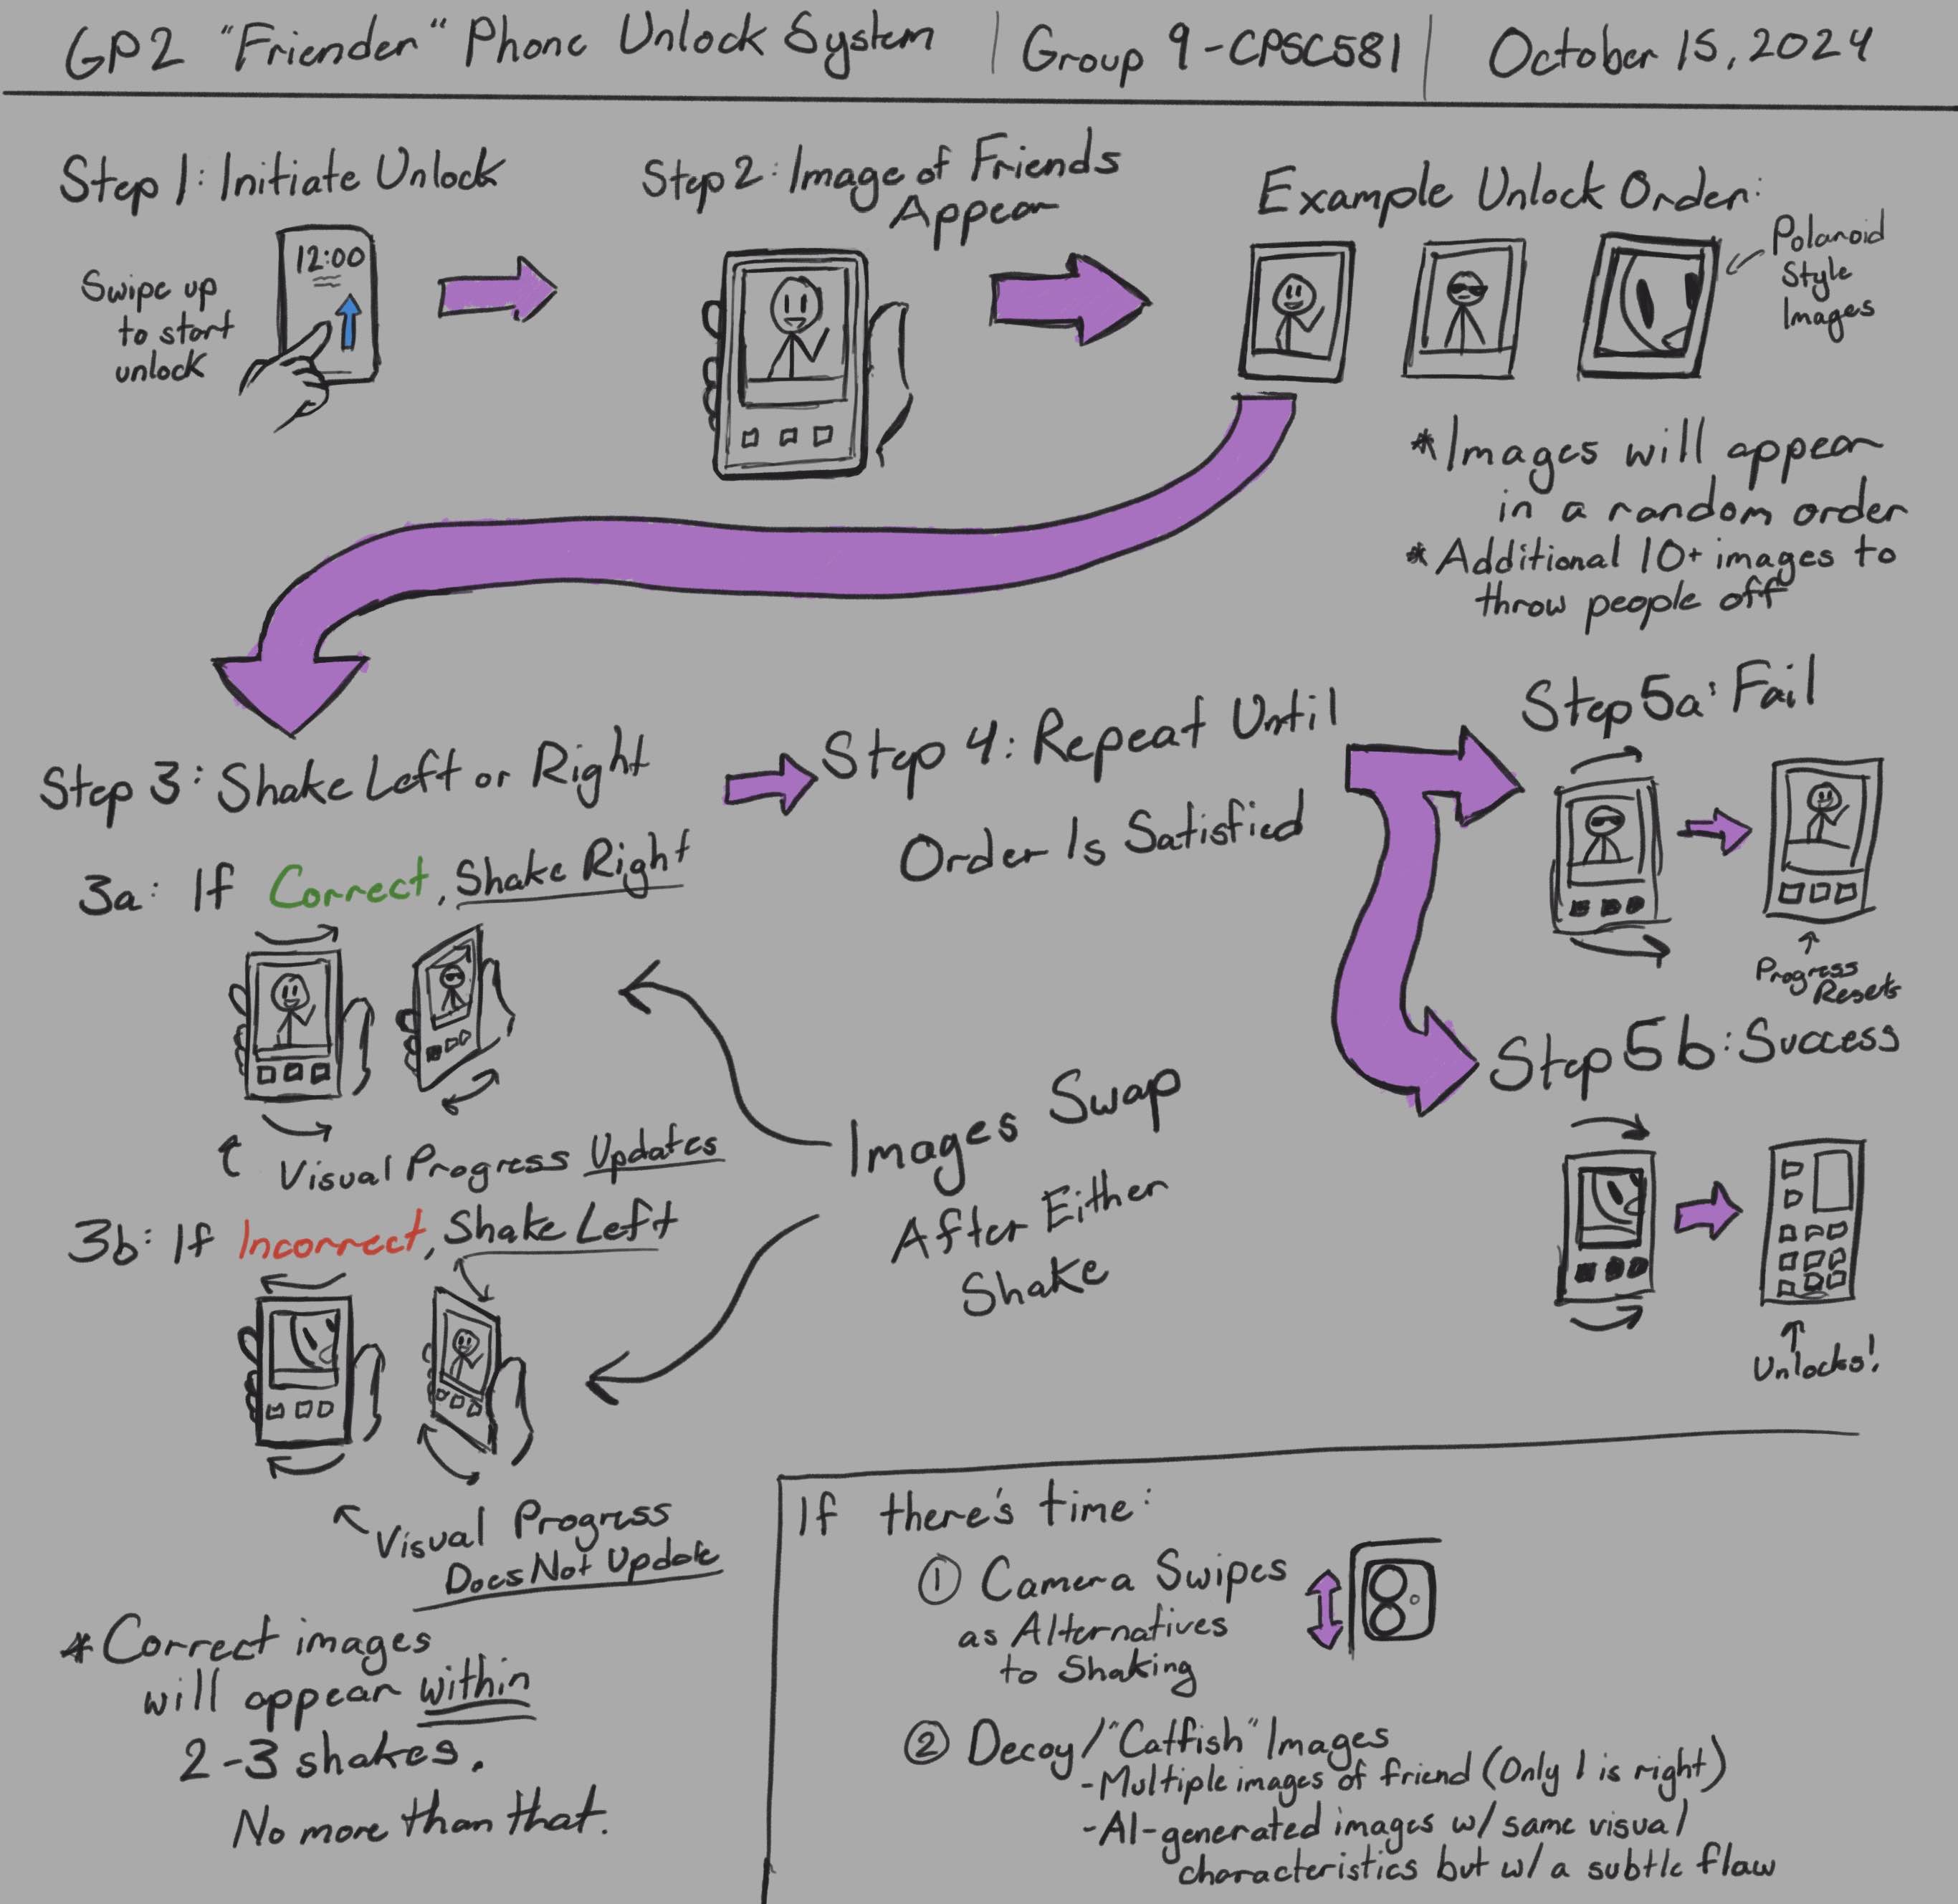 GP2 "Friender" Phone Unlock System | Group 9-CPSC581 | October 15, 2024
Step 1: Initiate Unlock
Swipe up
to start
unlock
12:00
Step 2: Image of Friends
Appear
Example Unlock Order:
Polaroid
Style
Images
*Images will appear
in a random order
*Additional 10+ images to
throw people off
Step 3: Shake Left or Right
3a: If Correct, Shake Right
Visual Progress Updates
3b: If Incorrect, Shake Left
Visual Progress
Does Not Update
*Correct images
will appear within
2-3 shakes.
No more than that.
Images Swap
After Either
Shake
Step 4: Repeat Until
Order Is Satisfied
Step 5a: Fail
Progress
Resets
Step 5b: Success
Unlocks!
If there's time:
① Camera Swipes
as Alternatives
to Shaking
② Decoy/"Catfish" Images
-Multiple images of friend (Only 1 is right)
-AI-generated images w/ same visual
characteristics but w/ a subtle flaw